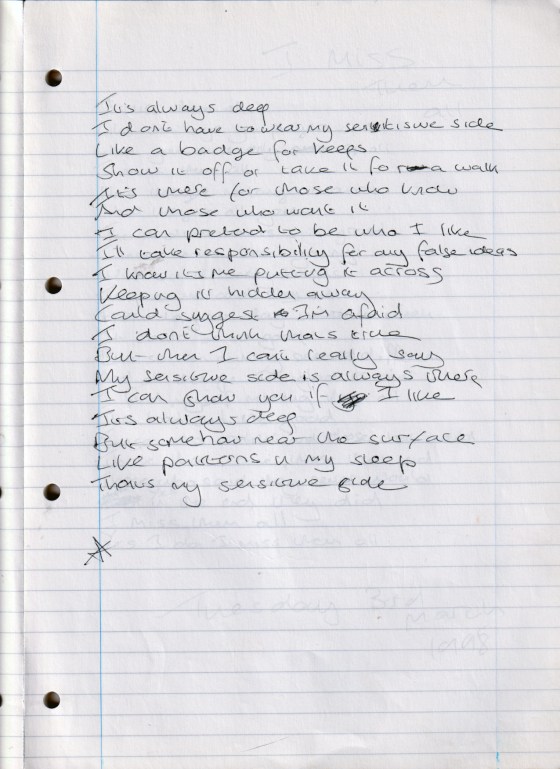 It's always deep
I don't have to wear my sensitive side
Like a badge for keeps
Show it off or take it for a walk
It's there for those who know
And those who want it
I can pretend to be who I like
I'll take responsibility for any false ideas
I know it's me putting it across
Keeping it hidden away
Could suggest I'm afraid
I don't think that's true
But then I can't really say
My sensitive side is always there
I can show you if I like
It's always deep
But somehow near the surface
Like patterns in my sleep
That's my sensitive side
I MISS
Tuesday 3rd
March
1998